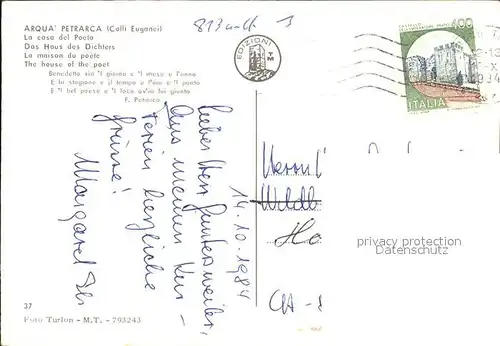 ARQUA' PETRARCA (Colli Euganei)
La casa del Poeta
Das Haus des Dichters
La maison du poète
The house of the poet
Benedetto sia 'l giorno e 'l mese e l'anno
E la stagione e il tempo e l'ora e 'l punto
E 'l bel paese e 'l loco ov'io fui giunto
F. Petrarca
EDIZIONI
T M
400
ITALIA
14.10.1984
Lieber Herr
Aus meinen Kur-
ferien herzliche
Grüsse!
Margaret
Herrn
CH -
privacy protection
Datenschutz
37
Foto Turlon - M.T. - 793243